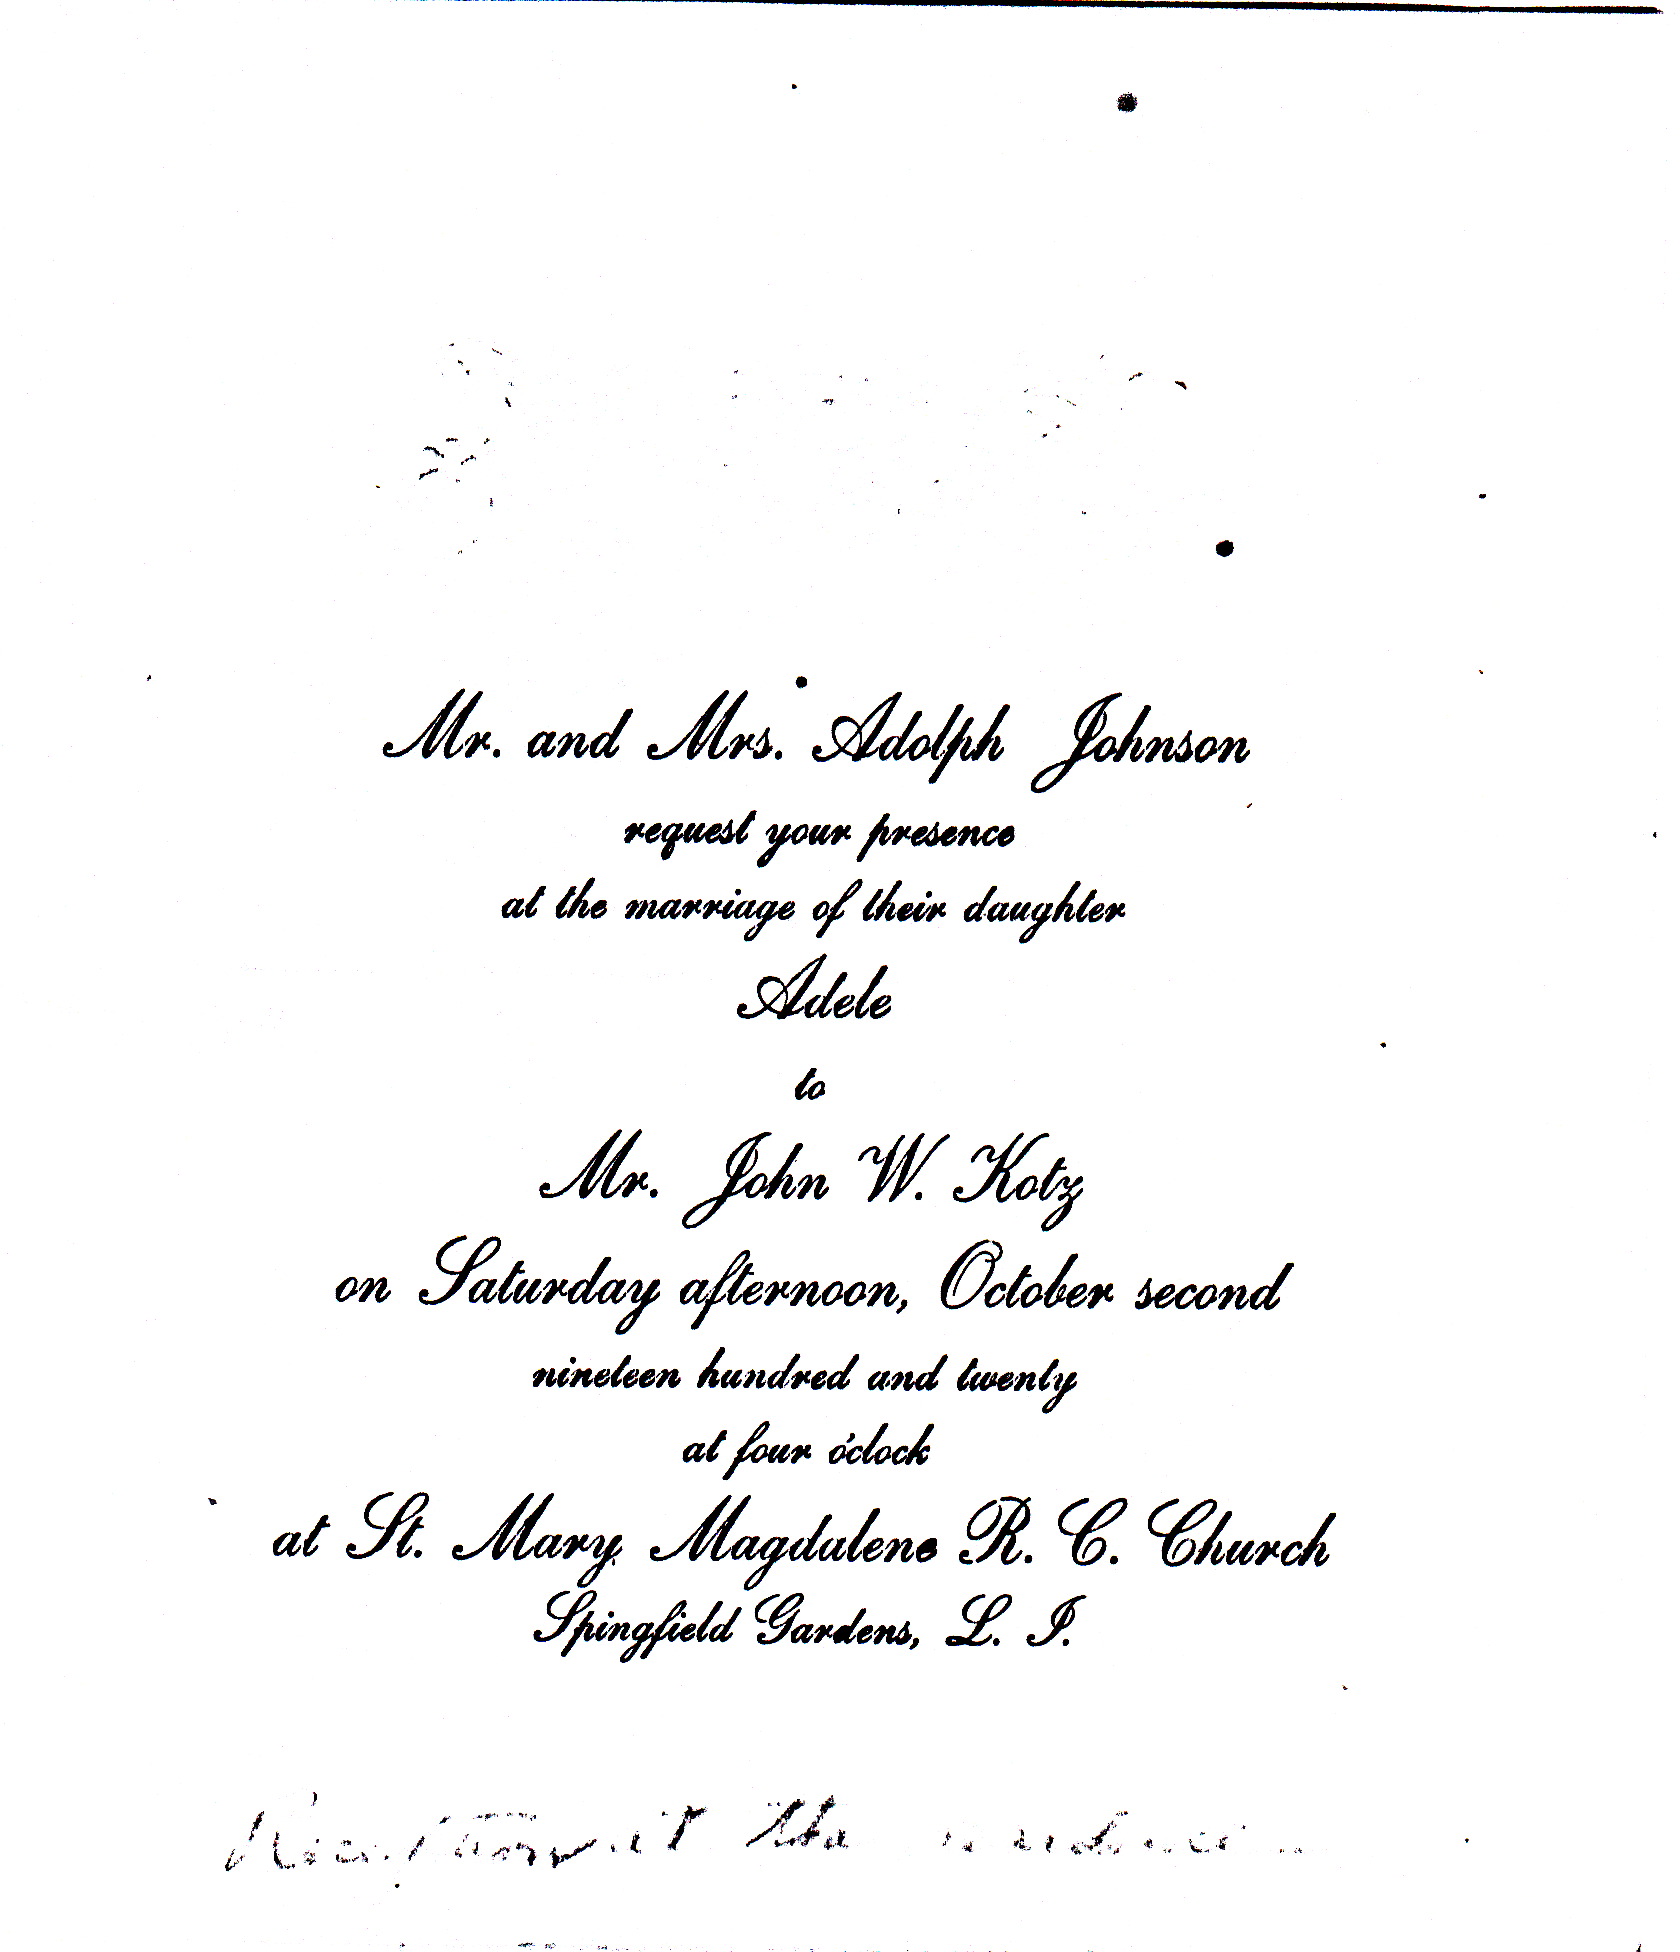 Mr. and Mrs. Adolph Johnson
request your presence
at the marriage of their daughter
Adele
to
Mr. John W. Kotz
on Saturday afternoon, October second
nineteen hundred and twenty
at four o'clock
at St. Mary Magdalene R. C. Church
Spingfield Gardens, L. I.
at the